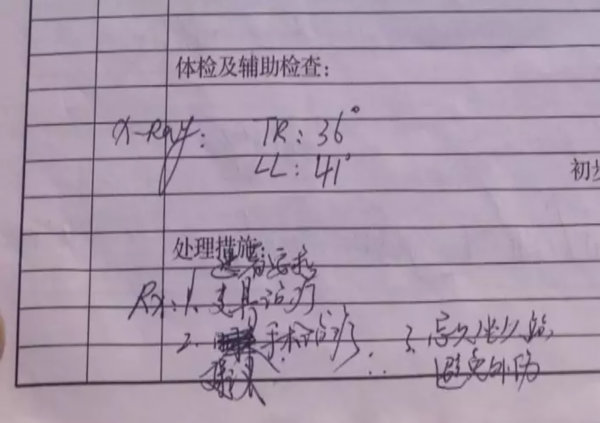 体检及辅助检查:
X-Ray: TR: 36°
LL: 41°
初步
处理措施:
患者要求
Rx: 1. 支具治疗
2. 手术治疗 3.
避免外伤